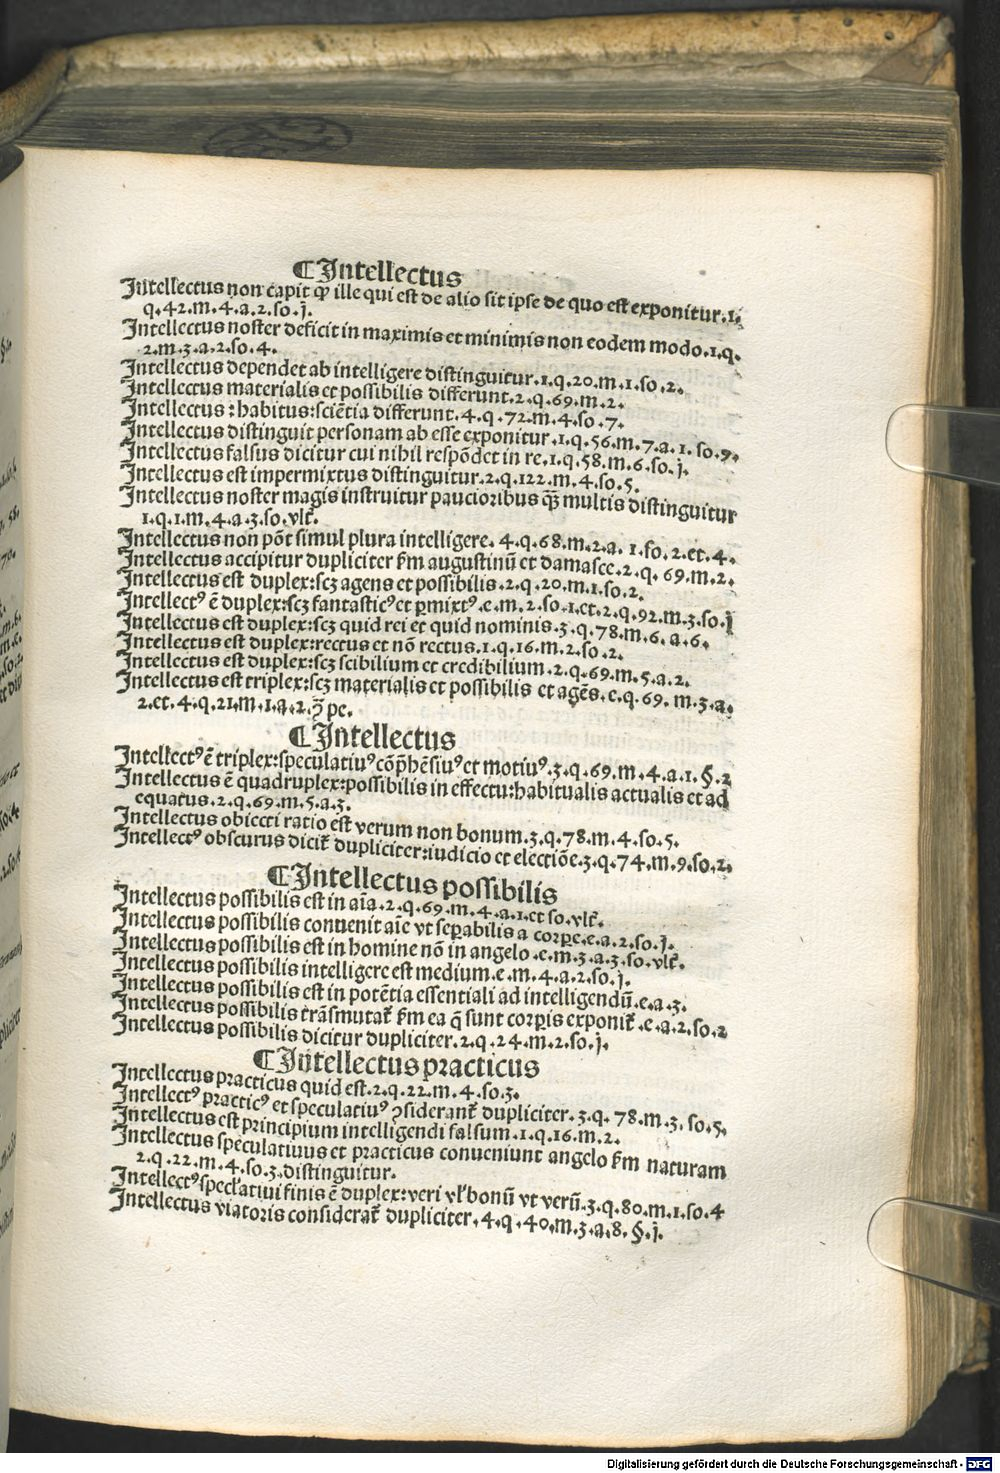 ¶Intellectus
Intellectus non capit ꝙ ille qui est de alio sit ipse de quo est exponitur.1.
q.42.m.4.a.2.so.j.
Intellectus noster deficit in maximis et minimis non eodem modo.1.q.
2.m.3.a.2.so.4.
Intellectus dependet ab intelligere distinguitur.1.q.20.m.1.so.2.
Intellectus materialis et possibilis differunt.2.q.69.m.2.
Intellectus:habitus:sciẽtia differunt.4.q.72.m.4.so.7.
Intellectus distinguit personam ab esse exponitur.1.q.56.m.7.a.1.so.9.
Intellectus falsus dicitur cui nihil respõdet in re.1.q.58.m.6.so.j.
Intellectus est impermixtus distinguitur.2.q.122.m.4.so.5.
Intellectus noster magis instruitur paucioribus q̃ꝫ multis distinguitur
1.q.1.m.4.a.3.so.vlt̃.
Intellectus non põt simul plura intelligere.4.q.68.m.2.a.1.so.2.et.4.
Intellectus accipitur dupliciter ẜm augustinũ et damasce.2.q.69.m.2.
Intellectus est duplex:scꝫ agens et possibilis.2.q.20.m.1.so.2.
Intellectꝰ ẽ duplex:scꝫ fantasticꝰ et ꝑmixtꝰ.e.m.2.so.1.et.2.q.92.m.3.so.j
Intellectus est duplex:scꝫ quid rei et quid nominis.3.q.78.m.6.a.6.
Intellectus est duplex:rectus et nõ rectus.1.q.16.m.2.so.2.
Intellectus est duplex:scꝫ scibilium et credibilium.2.q.69.m.5.a.2.
Intellectus est triplex:scꝫ materialis et possibilis et agẽs.e.q.69.m.3.a.
2.et.4.q.21.m.1.a.2.ꝙ̃ pe.
¶Intellectus
Intellectꝰ ẽ triplex:speculatiuꝰ cõp̃hẽsiuꝰ et motiuꝰ.3.q.69.m.4.a.1.§.2
Intellectus ẽ quadruplex:possibilis in effectu:habitualis actualis et ad
equatus.2.q.69.m.5.a.3.
Intellectus obiecti ratio est verum non bonum.3.q.78.m.4.so.5.
Intellectꝰ obscurus dicit̃ dupliciter:iudicio et electiõe.3.q.74.m.9.so.2.
¶Intellectus possibilis
Intellectus possibilis est in aĩa.2.q.69.m.4.a.1.et so.vlt̃.
Intellectus possibilis conuenit aĩe vt seꝑabilis a corpe.e.a.2.so.j.
Intellectus possibilis est in homine nõ in angelo.e.m.3.a.3.so.vlt̃.
Intellectus possibilis intelligere est medium.e.m.4.a.2.so.j.
Intellectus possibilis est in potẽtia essentiali ad intelligendũ.e.a.3.
Intellectus possibilis trãsmutat̃ ẜm ea q̃ sunt corꝑis exponit̃.e.a.2.so.2
Intellectus possibilis dicitur dupliciter.2.q.24.m.2.so.j.
¶Intellectus practicus
Intellectus practicus quid est.2.q.22.m.4.so.3.
Intellectꝰ practicꝰ et speculatiuꝰ ꝯsiderant̃ dupliciter.3.q.78.m.3.so.5.
Intellectus est principium intelligendi falsum.1.q.16.m.2.
Intellectus speculatiuus et practicus conueniunt angelo ẜm naturam
2.q.22.m.4.so.3.distinguitur.
Intellectꝰ specl̃atiui finis ẽ duplex:veri vl̃ bonũ vt verũ.3.q.80.m.1.so.4
Intellectus viatoris considerat̃ dupliciter.4.q.40.m.3.a.8.§.j.
Digitalisierung gefördert durch die Deutsche Forschungsgemeinschaft - DFG